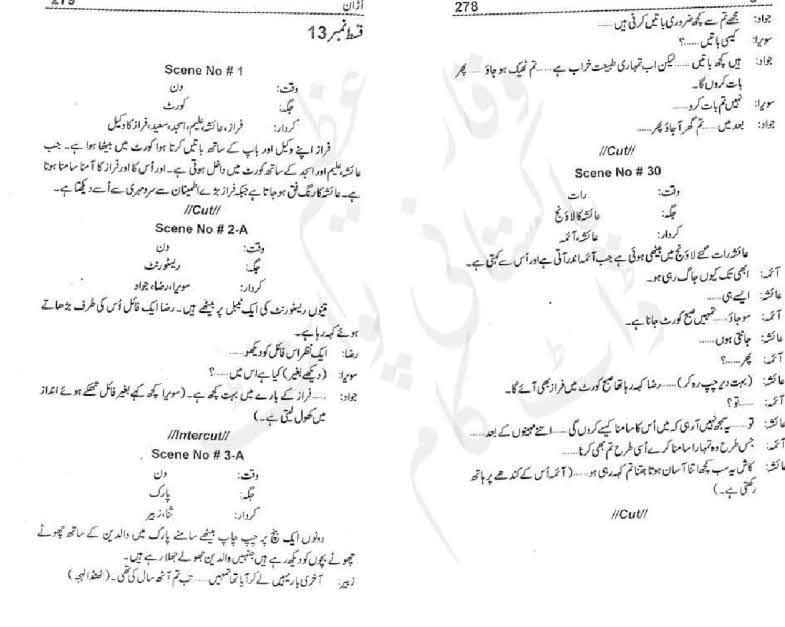 278
جواد: مجھے تم سے کچھ ضروری باتیں کرنی ہیں......
سویرا: کیسی باتیں......؟
جواد: ہیں کچھ باتیں......لیکن اب تمہاری طبیعت خراب ہے......تم ٹھیک ہو جاؤ ...... پھر
بات کروں گا۔
سویرا: نہیں تم بات کرو......
جواد: بعد میں......تم گھر آ جاؤ پھر......
//Cut//
Scene No # 30
وقت: رات
جگہ: عائشہ کا لاؤنج
کردار: عائشہ، آئمہ
عائشہ رات گئے لاؤنج میں بیٹھی ہوئی ہے جب آئمہ اندر آتی ہے اور اُس سے کہتی ہے۔
آئمہ: ابھی تک کیوں جاگ رہی ہو۔
عائشہ: ایسے ہی......
آئمہ: سو جاؤ......تمہیں صبح کورٹ جانا ہے۔
عائشہ: جانتی ہوں......
آئمہ: پھر......؟
عائشہ: (بہت دیر چپ رہ کر)......رضا کہہ رہا تھا صبح کورٹ میں فراز بھی آئے گا۔
آئمہ: ......تو؟
عائشہ: تو......یہ سمجھ نہیں آ رہی کہ میں اُس کا سامنا کیسے کروں گی......اتنے مہینوں کے بعد......
آئمہ: جس طرح وہ تمہارا سامنا کرے اُسی طرح تم بھی کرنا......
عائشہ: کاش یہ سب کچھ اتنا آسان ہوتا جتنا تم کہہ رہی ہو......(آئمہ اُس کے کندھے پر ہاتھ
رکھتی ہے۔)
//Cut//
279
اُڑان
قسط نمبر 13
Scene No # 1
وقت: دن
جگہ: کورٹ
کردار: فراز، عائشہ، علیم، اسجد، سعید، فراز کا وکیل
فراز اپنے وکیل اور باپ کے ساتھ باتیں کرتا ہوا کورٹ میں بیٹھا ہوا ہے۔ جب
عائشہ، علیم اور اسجد کے ساتھ کورٹ میں داخل ہوتی ہے۔ اور اُس کا اور فراز کا آمنا سامنا ہوتا
ہے۔ عائشہ کا رنگ فق ہو جاتا ہے جبکہ فراز بڑے اطمینان سے سرد مہری سے اُسے دیکھتا ہے۔
//Cut//
Scene No # 2-A
وقت: دن
جگہ: ریسٹورنٹ
کردار: سویرا، رضا، جواد
تینوں ریسٹورنٹ کی ایک ٹیبل پر بیٹھے ہیں۔ رضا ایک فائل اُس کی طرف بڑھاتے
ہوئے کہہ رہا ہے۔
رضا: ایک نظر اس فائل کو دیکھو......
سویرا: (دیکھے بغیر) کیا ہے اس میں......؟
جواد: ......فراز کے بارے میں بہت کچھ ہے۔ (سویرا کچھ کہے بغیر فائل تھکے ہوئے انداز
میں کھول لیتی ہے۔)
//Intercut//
Scene No # 3-A
وقت: دن
جگہ: پارک
کردار: ثنا، زبیر
دونوں ایک بنچ پر چپ چاپ بیٹھے سامنے پارک میں والدین کے ساتھ چھوٹے
چھوٹے بچوں کو دیکھ رہے ہیں جنہیں والدین جھولے جھلا رہے ہیں۔
زبیر: آخری بار یہیں لے کر آیا تھا تمہیں......تب تم آٹھ سال کی تھی۔ (ٹھنڈا لہجہ)
وقار عظیم
پاکستانی پوائنٹ
ڈاٹ کام